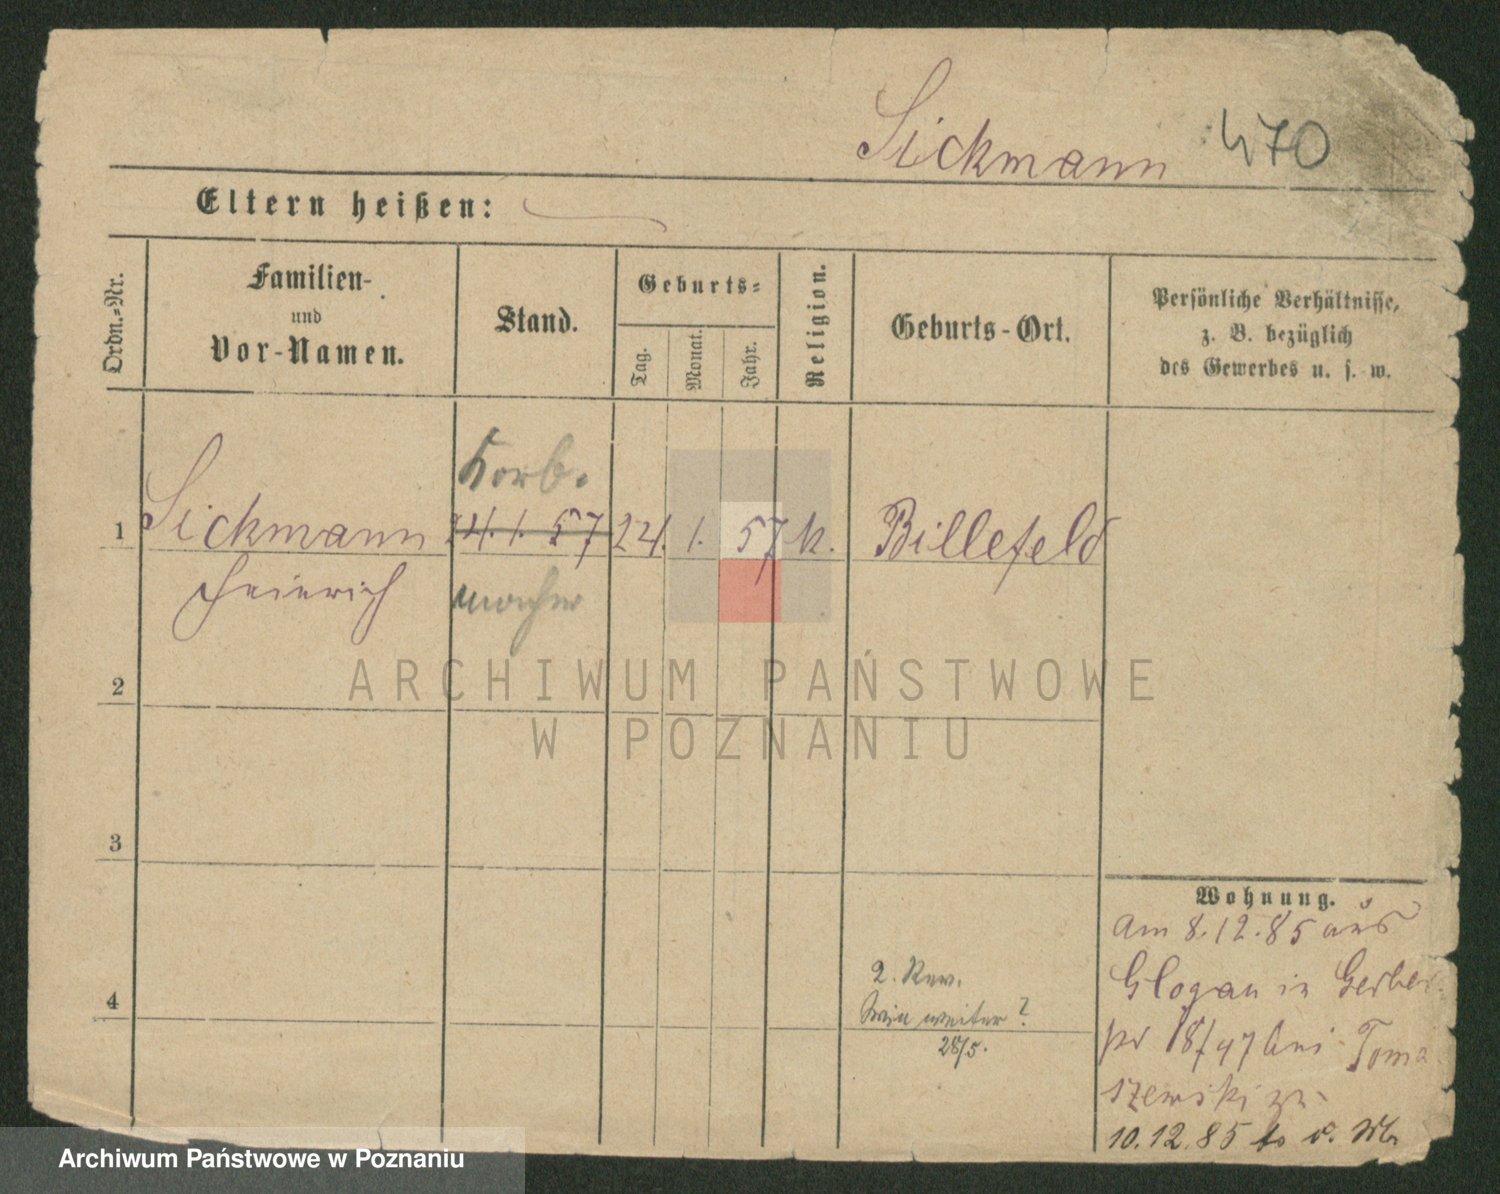 Sickmann 470
Eltern heißen:
Ordn.-Nr.
Familien-
und
Vor-Namen.
Stand.
Geburts-
Tag.
Monat.
Jahr.
Religion.
Geburts-Ort.
Persönliche Verhältnisse,
z. B. bezüglich
des Gewerbes u. s. w.
Korb-
1 Sickmann 24. 1. 57 24. 1. 57 k. Billefeld
Heinrich macher
2
3
4
Wohnung.
Am 8.12.85 aus
Glogau in Gerber
18/47 bei Toma
szewski zu
10.12.85
2. Rev.
weiter?
28/5.
ARCHIWUM PAŃSTWOWE
W POZNANIU
Archiwum Państwowe w Poznaniu